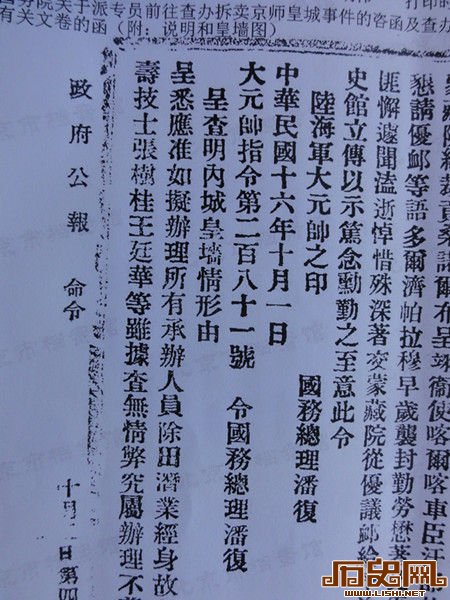 打印的
务院关于派专员前往查办拆卖京师皇城事件的咨函及查办
有关文卷的函(附:说明和皇墙图)
蒙藏院總裁貢桑諾爾布呈翊衞使喀爾喀車臣汗
懇請優邮等語多爾濟帕拉穆早歲襲封勤勞懋著
匪懈遽聞溘逝悼惜殊深著交蒙藏院從優議邮給
史館立傳以示篤念勳勤之至意此令
陸海軍大元帥之印 國務總理潘復
中華民國十六年十月一日
大元帥指令第二百八十一號 令國務總理潘復
呈查明內城皇墻情形由
呈悉應准如擬辦理所有承辦人員除田潛業經身故
壽技士張樹桂王廷華等雖據查無情弊究屬辦理不
政府公報 命令 十月 日第四
历史网
WWW.LISHI.NET